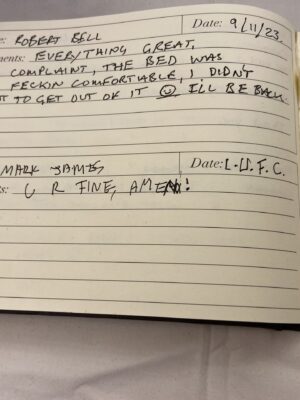 e: ROBERT BELL Date: 9/11/23
ments: EVERYTHING GREAT,
COMPLAINT, THE BED WAS
FECKIN COMFORTABLE, I DIDN'T
TO GET OUT OF IT ☺ I'LL BE BACK
MARK JAMES Date: L.U.F.C.
s: U R FINE, AMEN!